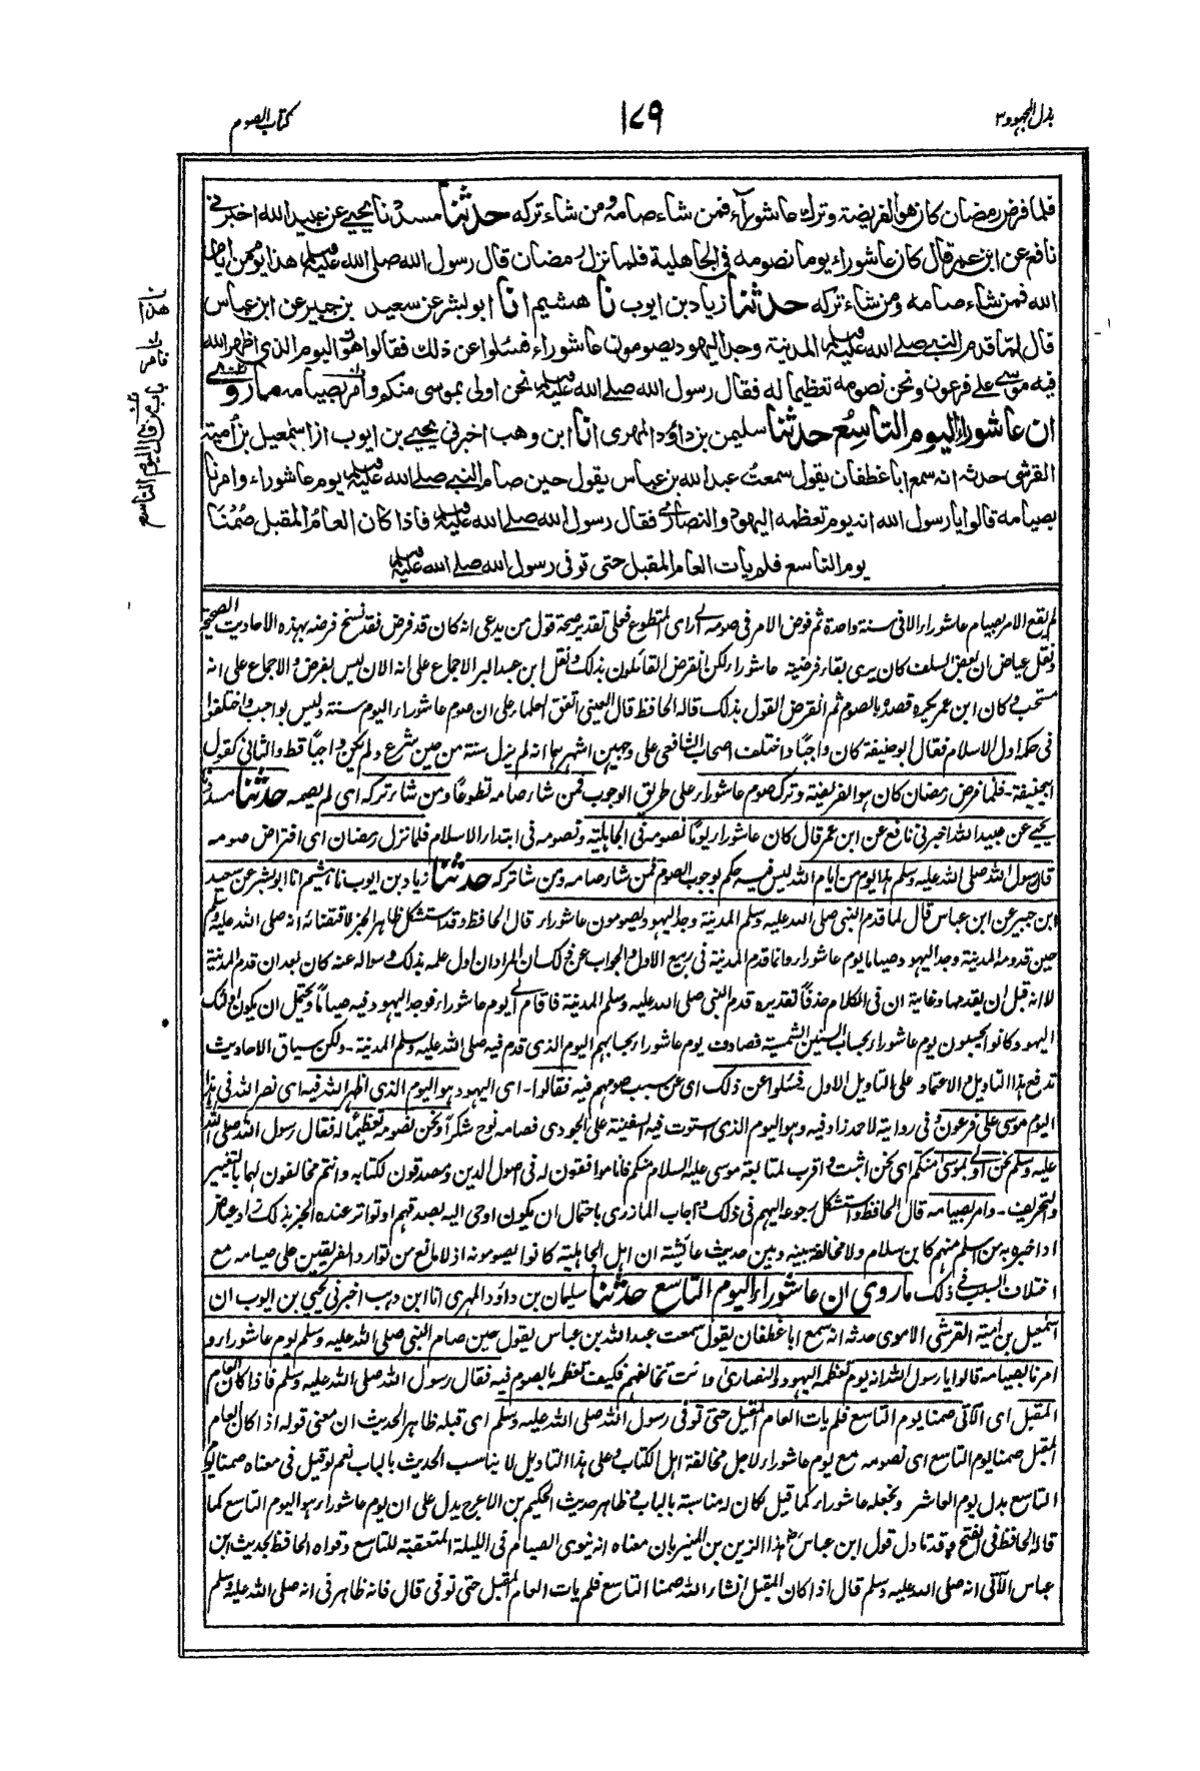 بذل المجهود ٣
١٧٩
كتاب الصوم
فلما فرض رمضان كان هو الفريضة وترك عاشوراء فمن شاء صامه ومن شاء تركه حدثنا مسدد نا يحيى عن عبيد الله اخبرني
نافع عن ابن عمر قال كان عاشوراء يوما نصومه في الجاهلية فلما نزل رمضان قال رسول الله صلى الله عليه وسلم هذا يوم من ايام
الله فمن شاء صامه ومن شاء تركه حدثنا زياد بن ايوب نا هشيم انا ابو بشر عن سعيد بن جبير عن ابن عباس
قال لما قدم النبي صلى الله عليه وسلم المدينة وجد اليهود يصومون عاشوراء فسئلوا عن ذلك فقالوا هو اليوم الذي اظهر الله
فيه موسى على فرعون ونحن نصومه تعظيما له فقال رسول الله صلى الله عليه وسلم نحن اولى بموسى منكم وامر بصيامه ما روي
ان عاشوراء اليوم التاسع حدثنا سليمن بن داؤد المهري انا ابن وهب اخبرني يحيى بن ايوب ان اسمعيل بن أمية
القرشي حدثه انه سمع ابا غطفان يقول سمعت عبد الله بن عباس يقول حين صام النبي صلى الله عليه وسلم يوم عاشوراء وامرنا
بصيامه قالوا يا رسول الله انه يوم تعظمه اليهود والنصارى فقال رسول الله صلى الله عليه وسلم فاذا كان العام المقبل صمنا
يوم التاسع فلم يات العام المقبل حتى توفى رسول الله صلى الله عليه وسلم
هذا
باب من في اليوم التاسع
لم يقع الامر بصيام عاشوراء الا في سنة واحدة ثم فوض الامر في صومه الى رأى المتطوع فعلى تقدير صحة قول من يدعى انه كان قد فرض فقد نسخ فرضه بهذه الاحاديث الصحيحة
ونقل عياض ان بعض السلف كان يرى بقاء فرضية عاشوراء لكن انقرض القائلون بذلك ونقل ابن عبد البر الاجماع على انه الان ليس بفرض والاجماع على انه
مستحب وكان ابن عمر يكره قصده بالصوم ثم انقرض القول بذلك قاله الحافظ قال العيني اتفق العلماء على ان صوم عاشوراء اليوم سنة وليس بواجب واختلفوا
في حكمه اول الاسلام فقال ابو حنيفة كان واجبا واختلف اصحاب الشافعي على وجهين اشهرهما انه لم يزل سنة من حين شرع ولم يكن واجبا قط والثاني كقول
ابي حنيفة - فلما فرض رمضان كان هو الفريضة وترك صوم عاشوراء على طريق الوجوب فمن شاء صامه تطوعا ومن شاء تركه اى لم يصمه حدثنا مسدد نا
يحيى عن عبيد الله اخبرني نافع عن ابن عمر قال كان عاشوراء يوما نصومه في الجاهلية ونصومه في ابتداء الاسلام فلما نزل رمضان اى افتراض صومه
قال رسول الله صلى الله عليه وسلم هذا يوم من ايام الله ليس فيه حكم بوجوب الصوم فمن شاء صامه ومن شاء تركه حدثنا زياد بن ايوب نا هشيم انا ابو بشر عن سعيد
ابن جبير عن ابن عباس قال لما قدم النبي صلى الله عليه وسلم المدينة وجد اليهود يصومون عاشوراء قال الحافظ وقد استشكل ظاهر الخبر لاقتضائه انه صلى الله عليه وسلم
حين قدومه المدينة وجد اليهود صياما يوم عاشوراء وانما قدم المدينة في ربيع الاول والجواب عن ذلك ان المراد ان اول علمه بذلك وسواله عنه كان بعد ان قدم المدينة
لا انه قبل ان يقدمها وغاية ان في الكلام حذفا تقديره قدم النبي صلى الله عليه وسلم المدينة فاقام الى يوم عاشوراء فوجد اليهود فيه صياما ويحتمل ان يكون اولئك
اليهود كانوا يحسبون يوم عاشوراء بحساب السنين الشمسية فصادف يوم عاشوراء بحسابهم اليوم الذي قدم فيه صلى الله عليه وسلم المدينة - ولكن سياق الاحاديث
تدفع هذا التاويل والاعتماد على التاويل الاول فسئلوا عن ذلك اى عن سبب صومهم فيه فقالوا - اى اليهود هو اليوم الذي اظهر الله فيه اى نصر الله في هذا
اليوم موسى على فرعون في رواية لاحمد زاد فيه وهو اليوم الذي استوت فيه السفينة على الجودي فصامه نوح شكرا ونحن نصومه تعظيما له فقال رسول الله صلى الله
عليه وسلم نحن اولى بموسى منكم اى نحن اثبت واقرب لمتابعة موسى عليه السلام منكم فانا موافقون له في اصول الدين ومصدقون لكتابه وانتم مخالفون لهما بالتغيير
والتحريف - وامر بصيامه قال الحافظ واستشكل رجوعه اليهم في ذلك واجاب المازري باحتمال ان يكون اوحى اليه بصدقهم او تواتر عنده الخبر بذلك زاد عياض
او اخبره به من اسلم منهم كابن سلام ولا مخالفة بينه وبين حديث عائشة ان اهل الجاهلية كانوا يصومونه اذ لا مانع من توارد الفريقين على صيامه مع
اختلاف السبب في ذلك ما روي ان عاشوراء اليوم التاسع حدثنا سليمان بن داؤد المهري انا ابن وهب اخبرني يحيى بن ايوب ان
اسمعيل بن امية القرشي الاموي حدثه انه سمع ابا غطفان يقول سمعت عبد الله بن عباس يقول حين صام النبي صلى الله عليه وسلم يوم عاشوراء و
امرنا بصيامه قالوا يا رسول الله انه يوم تعظمه اليهود والنصارى وانت تخالفهم فكيف تعظمه بالصوم فيه فقال رسول الله صلى الله عليه وسلم فاذا كان العام
المقبل اى الآتي صمنا يوم التاسع فلم يات العام المقبل حتى توفى رسول الله صلى الله عليه وسلم اى قبله ظاهر الحديث ان معنى قوله اذا كان العام
المقبل صمنا يوم التاسع اى نصومه مع يوم عاشوراء لاجل مخالفة اهل الكتاب وعلى هذا التاويل لا يناسب الحديث بالباب نعم لو قيل في معناه صمنا يوم
التاسع بدل يوم العاشر ونجعله عاشوراء كما قيل لكان له مناسبة بالباب وظاهر حديث الحكيم بن الاعرج يدل على ان يوم عاشوراء هو اليوم التاسع كما
قاله الحافظ في الفتح وقد تاول قول ابن عباس هذا الزين بن المنير بان معناه انه ينوى الصيام في الليلة المتعقبة للتاسع وقواه الحافظ بحديث ابن
عباس الآتي انه صلى الله عليه وسلم قال اذا كان المقبل ان شاء الله صمنا التاسع فلم يات العام المقبل حتى توفى قال فانه ظاهر في انه صلى الله عليه وسلم